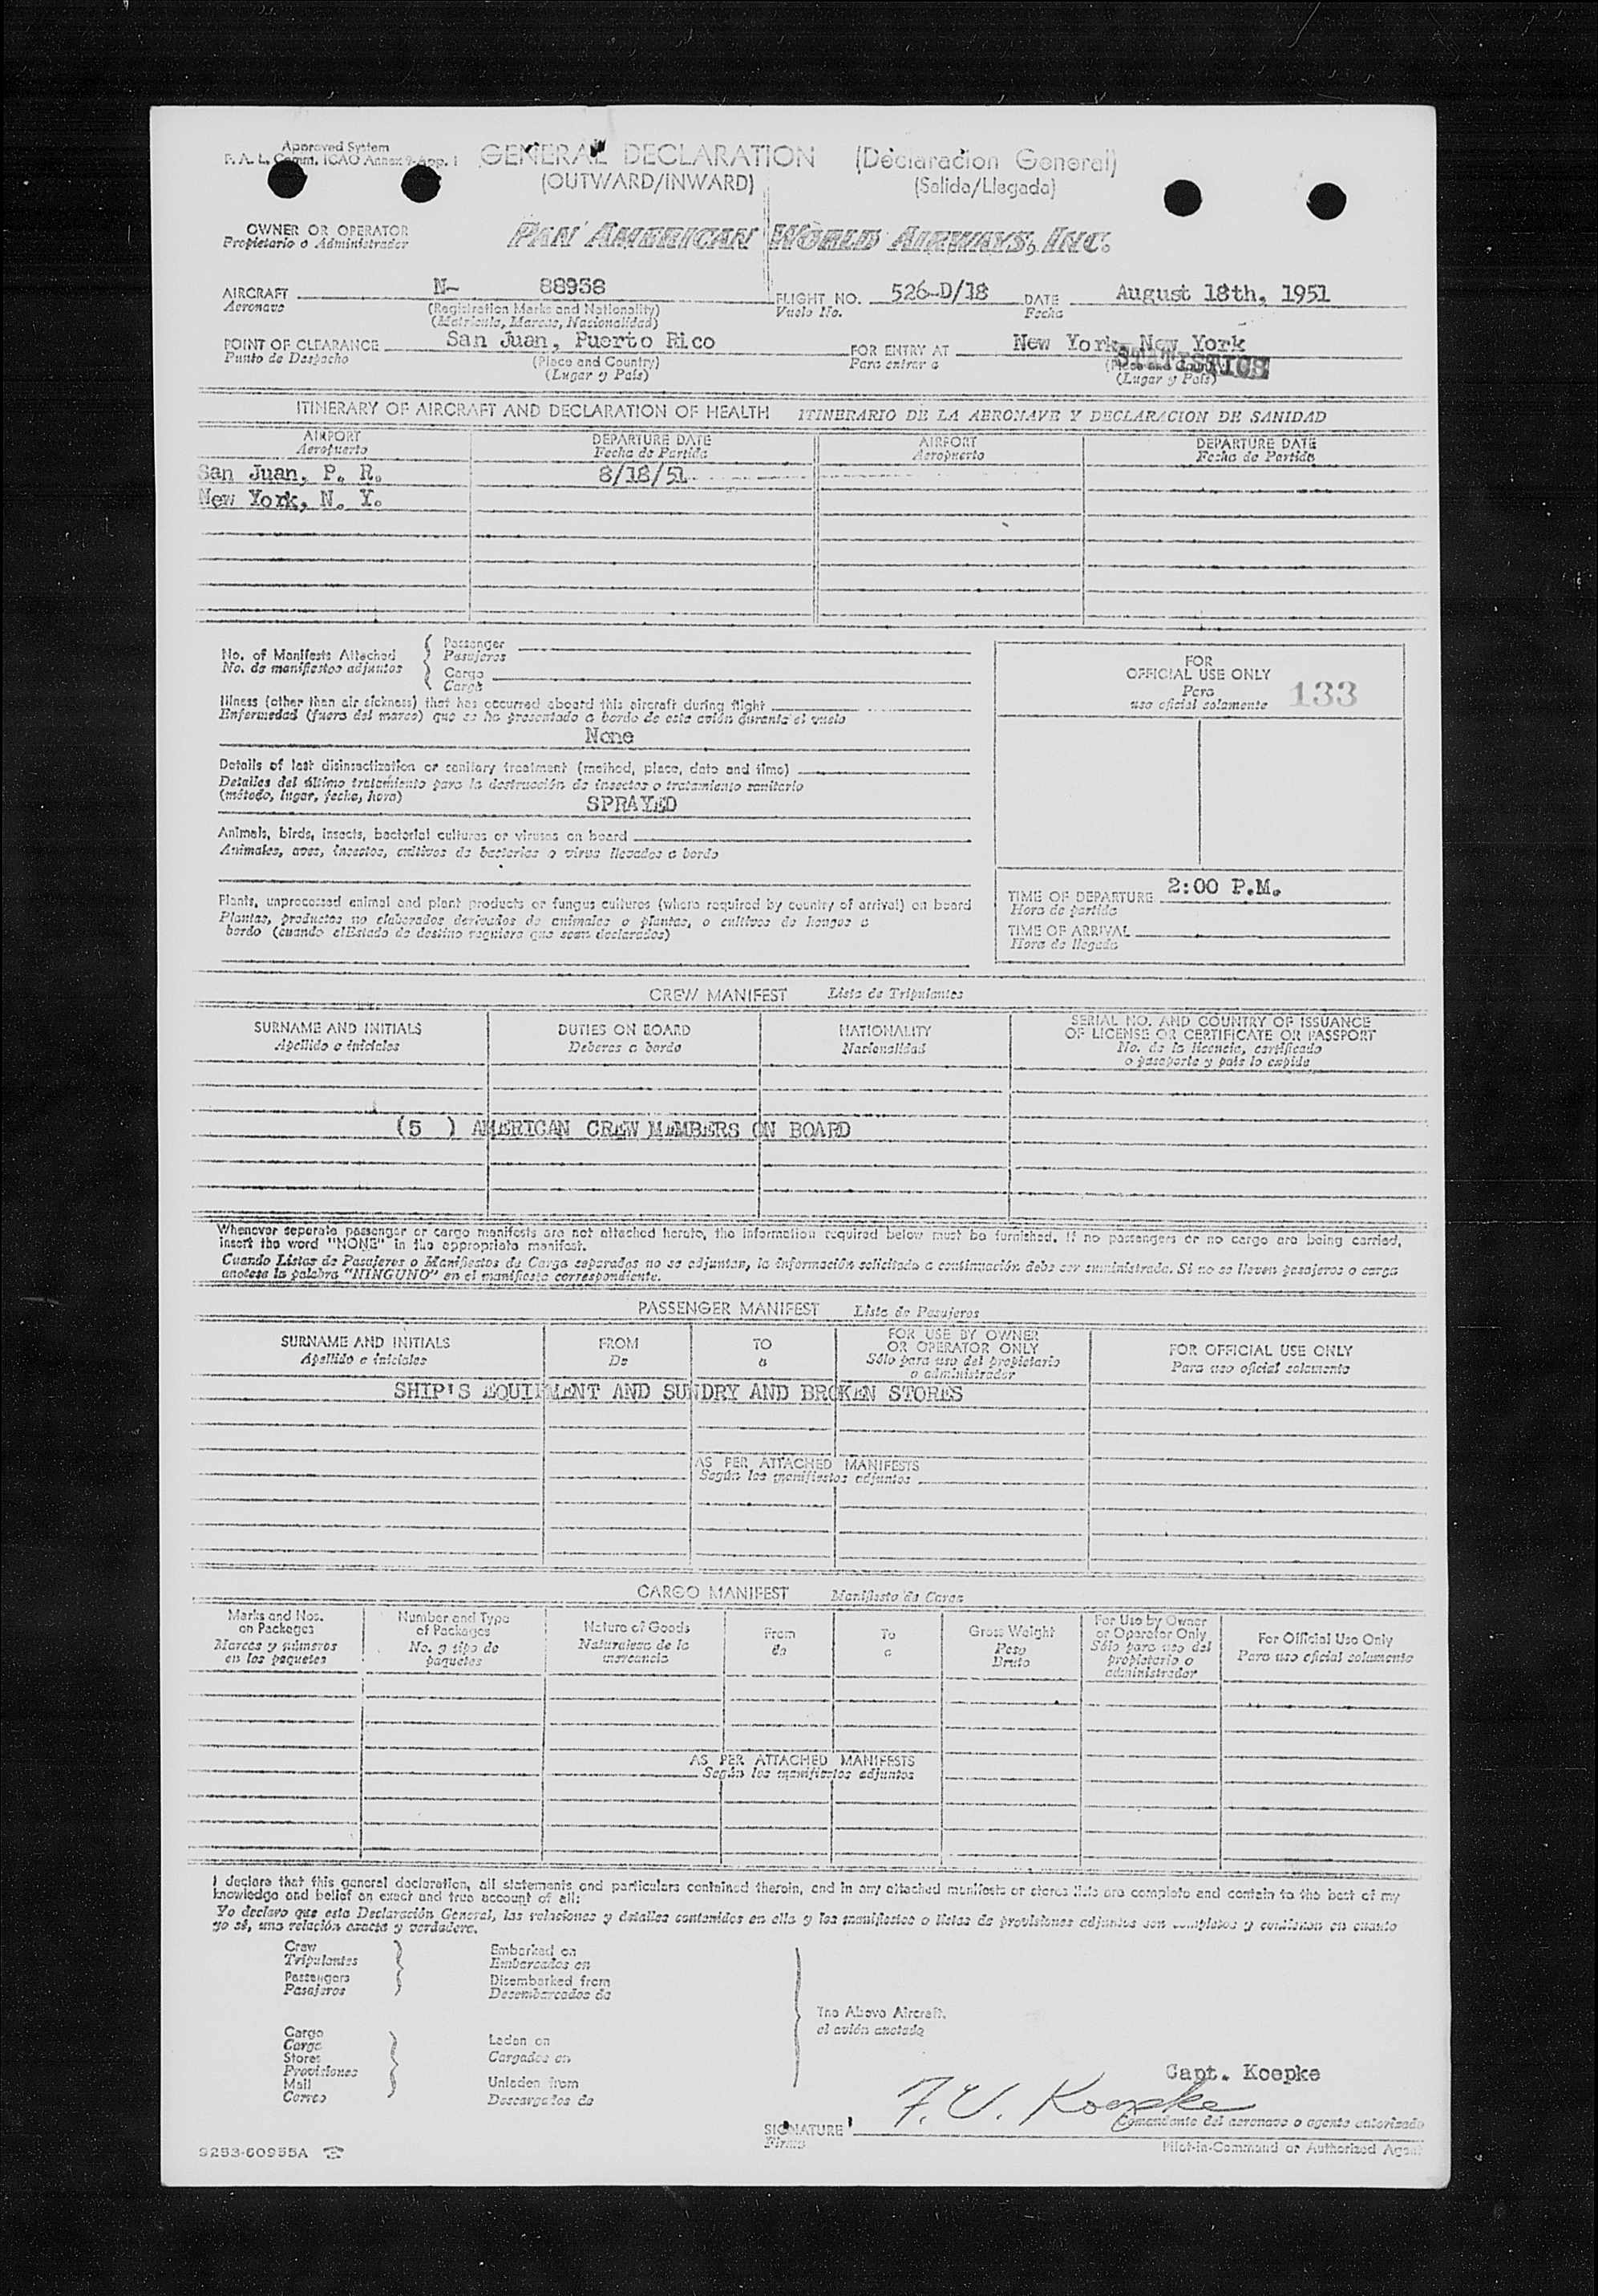 Approved System
F. A. L. Comm. ICAO Annex 9-App. 1
GENERAL DECLARATION (Declaracion General)
(OUTWARD/INWARD) (Salida/Llegada)
OWNER OR OPERATOR
Propietario o Administrador
PAN AMERICAN WORLD AIRWAYS, INC.
AIRCRAFT N- 88958 FLIGHT NO. 526-D/18 DATE August 18th, 1951
Aeronave (Registration Marks and Nationality) Vuelo No. Fecha
(Matricula, Marcas, Nacionalidad)
POINT OF CLEARANCE San Juan, Puerto Rico FOR ENTRY AT New York, New York
Punto de Despacho (Place and Country) Para entrar a (Place and Country) STATISTICS
(Lugar y País) (Lugar y País)
ITINERARY OF AIRCRAFT AND DECLARATION OF HEALTH ITINERARIO DE LA AERONAVE Y DECLARACION DE SANIDAD
AIRPORT DEPARTURE DATE AIRPORT DEPARTURE DATE
Aeropuerto Fecha de Partida Aeropuerto Fecha de Partida
San Juan, P. R. 8/18/51
New York, N. Y.
No. of Manifests Attached
No. de manifiestos adjuntos
Passenger
Pasajeros
Cargo
Carga
FOR
OFFICIAL USE ONLY
Para
uso oficial solamente 133
Illness (other than air sickness) that has occurred aboard this aircraft during flight
Enfermedad (fuera del mareo) que se ha presentado a bordo de este avión durante el vuelo
None
Details of last disinsectization or sanitary treatment (method, place, date and time)
Detalles del último tratamiento para la destrucción de insectos o tratamiento sanitario
(método, lugar, fecha, hora)
SPRAYED
Animals, birds, insects, bacterial cultures or viruses on board
Animales, aves, insectos, cultivos de bacterias o virus llevados a bordo
Plants, unprocessed animal and plant products or fungus cultures (where required by country of arrival) on board
Plantas, productos no elaborados derivados de animales o plantas, o cultivos de hongos a
bordo (cuando elEstado de destino requiera que sean declarados)
TIME OF DEPARTURE 2:00 P.M.
Hora de partida
TIME OF ARRIVAL
Hora de llegada
CREW MANIFEST Lista de Tripulantes
SURNAME AND INITIALS DUTIES ON BOARD NATIONALITY SERIAL NO. AND COUNTRY OF ISSUANCE
OF LICENSE OR CERTIFICATE OR PASSPORT
Apellido e iniciales Deberes a bordo Nacionalidad No. de la licencia, certificado
o pasaporte y país lo expide
(5 ) AMERICAN CREW MEMBERS ON BOARD
Whenever separate passenger or cargo manifests are not attached hereto, the information required below must be furnished. If no passengers or no cargo are being carried,
insert the word "NONE" in the appropriate manifest.
Cuando Listas de Pasajeros o Manifiestos de Carga separados no se adjuntan, la información solicitada a continuación debe ser suministrada. Si no se llevan pasajeros o carga
anotese la palabra "NINGUNO" en el manifiesto correspondiente.
PASSENGER MANIFEST Lista de Pasajeros
SURNAME AND INITIALS FROM TO FOR USE BY OWNER
OR OPERATOR ONLY FOR OFFICIAL USE ONLY
Apellido e iniciales De a Sólo para uso del propietario
o administrador Para uso oficial solamente
SHIP'S EQUIPMENT AND SUNDRY AND BROKEN STORES
AS PER ATTACHED MANIFESTS
Según los manifiestos adjuntos
CARGO MANIFEST Manifiesto de Carga
Marks and Nos.
on Packages
Marcas y números
en los paquetes
Number and Type
of Packages
No. y tipo de
paquetes
Nature of Goods
Naturaleza de la
mercancía
From
de
To
a
Gross Weight
Peso
Bruto
For Use by Owner
or Operator Only
Sólo para uso del
propietario o
administrador
For Official Use Only
Para uso oficial solamente
AS PER ATTACHED MANIFESTS
Según los manifiestos adjuntos
I declare that this general declaration, all statements and particulars contained therein, and in any attached manifests or stores lists are complete and contain to the best of my
knowledge and belief an exact and true account of all:
Yo declaro que esta Declaración General, las relaciones y detalles contenidos en ella y los manifiestos o listas de provisiones adjuntos son completos y contienen en cuanto
yo sé, una relación exacta y verdadera.
Crew
Tripulantes
Passengers
Pasajeros
Embarked on
Embarcados en
Disembarked from
Desembarcados de
Cargo
Carga
Stores
Provisiones
Mail
Correo
Laden on
Cargados en
Unladen from
Descargados de
The Above Aircraft.
el avión anotado
Capt. Koepke
F. U. Koepke
SIGNATURE
Firma
Comandante del aeronave o agente autorizado
Pilot-in-Command or Authorized Agent
9253-60955A